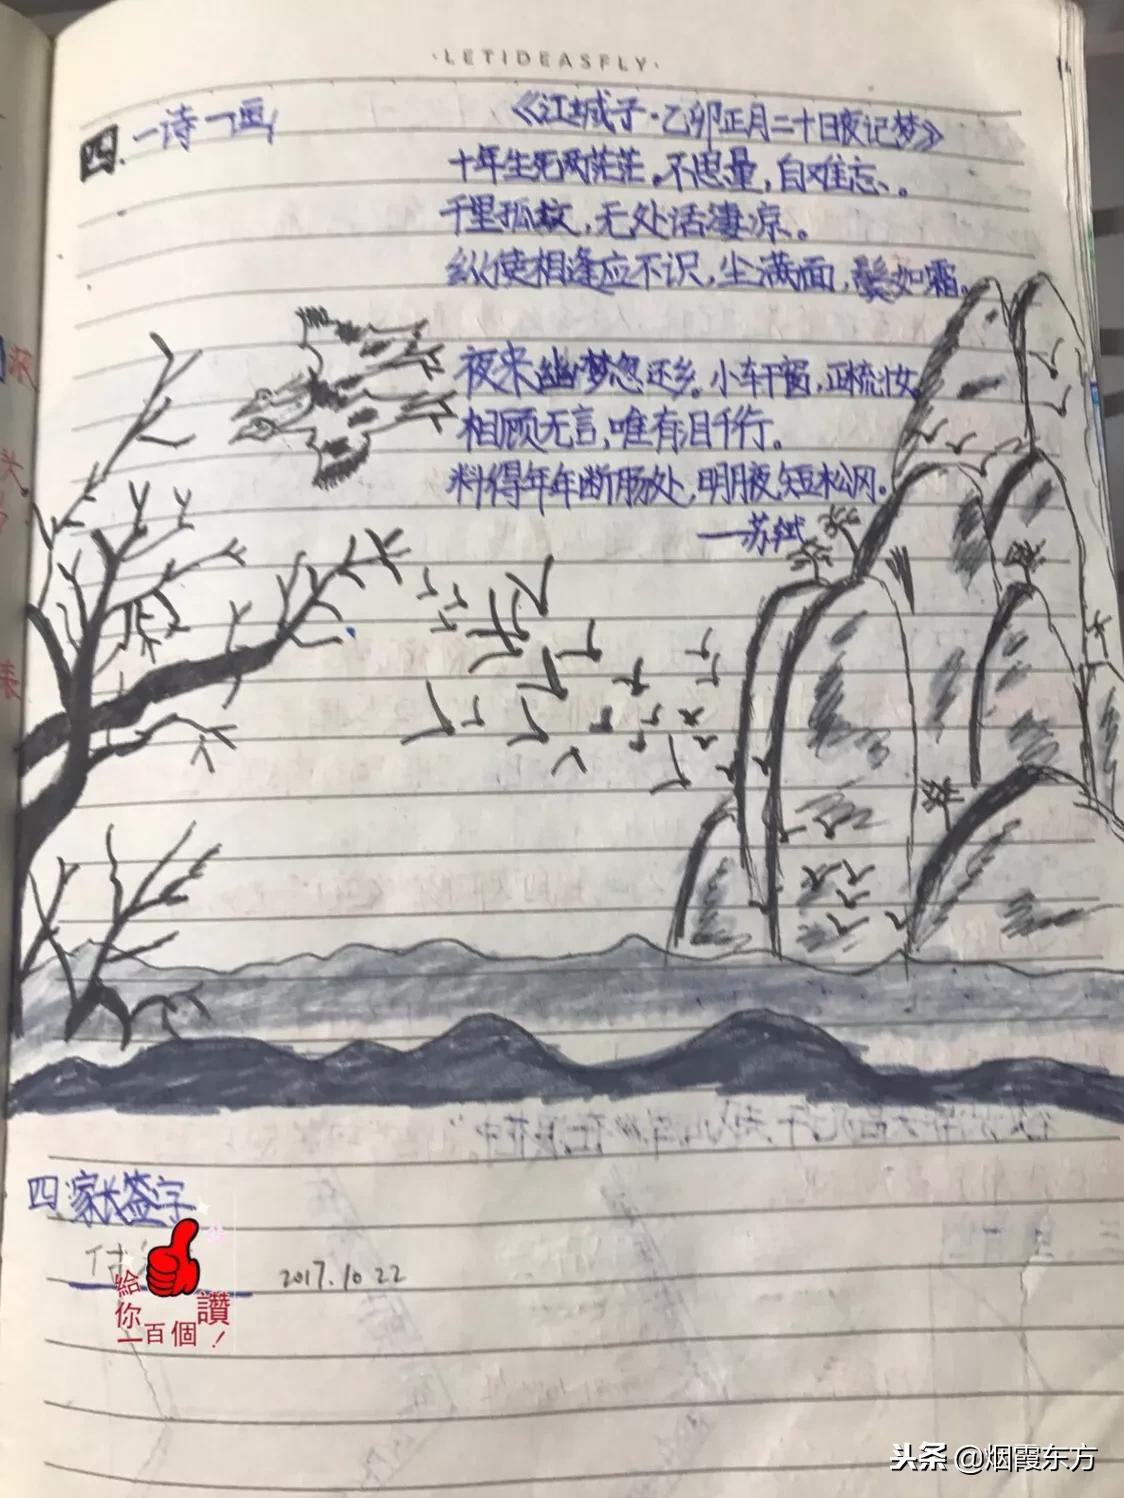 ·LETIDEASFLY·
四.一诗一画
《江城子·乙卯正月二十日夜记梦》
十年生死两茫茫。不思量，自难忘、。
千里孤坟，无处话凄凉。
纵使相逢应不识，尘满面，鬓如霜。
夜来幽梦忽还乡。小轩窗，正梳妆
相顾无言，唯有泪千行。
料得年年断肠处，明月夜，短松冈。
——苏轼
四.家长签字
付
2017.10.22
給你一百個讚！
头条 @烟霞东方